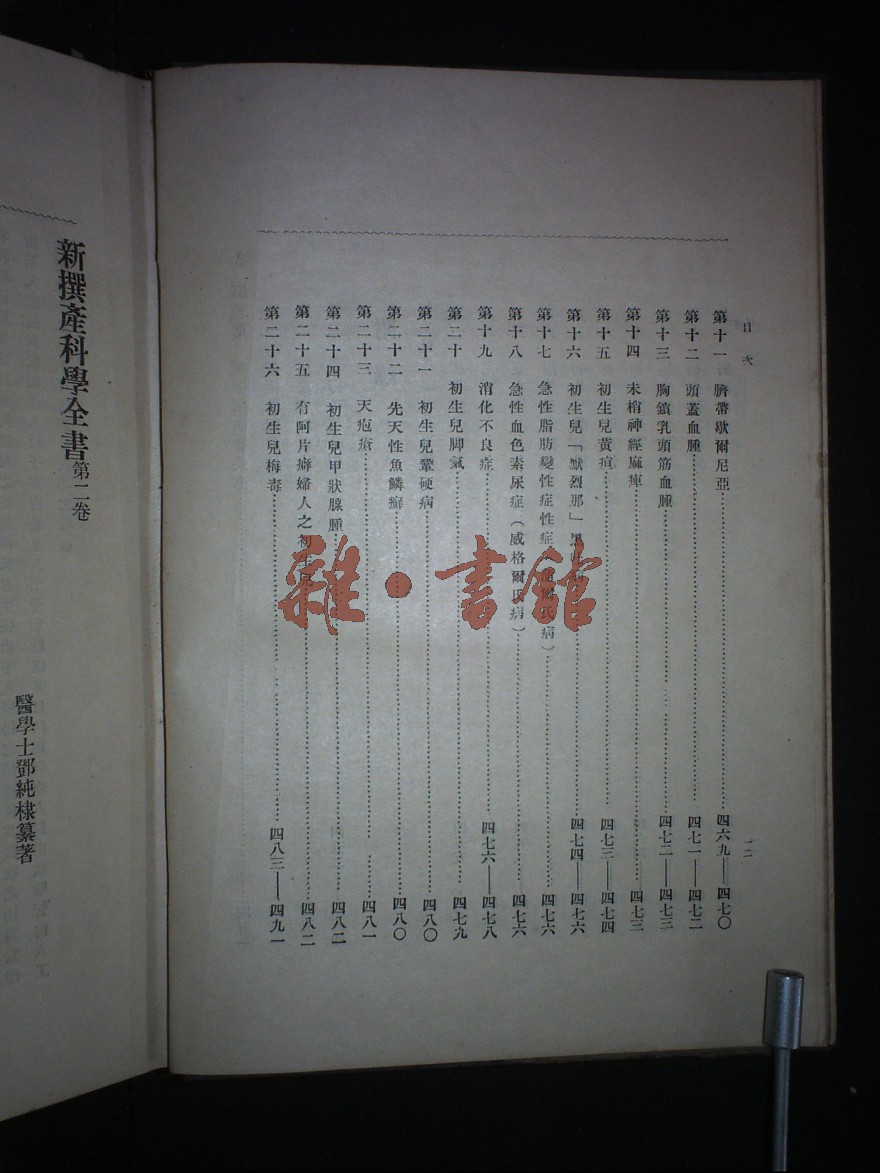 目次
第十一 臍帶歇爾尼亞…………四六九——四七〇
第十二 頭蓋血腫…………四七一——四七二
第十三 胸鎖乳頭筋血腫…………四七二——四七三
第十四 未梢神經麻痺…………四七三
第十五 初生兒黃疸…………四七三——四七四
第十六 初生兒「默烈那」…………四七四——四七六
第十七 急性脂肪變性症性症 氏病）…………四七六
第十八 急性血色素尿症（威格爾氏病）…………四七六
第十九 消化不良症…………四七六——四七八
第二十 初生兒脚氣…………四七九
第二十一 初生兒鞏硬病…………四八〇
第二十二 先天性魚鱗癬…………四八〇
第二十三 天疱瘡…………四八一
第二十四 初生兒甲狀腺腫…………四八二
第二十五 有阿片癖婦人之初生兒…………四八二
第二十六 初生兒梅毒…………四八三——四九一
一二
新撰產科學全書第二卷
醫學士鄧純棣纂著
雜·書館